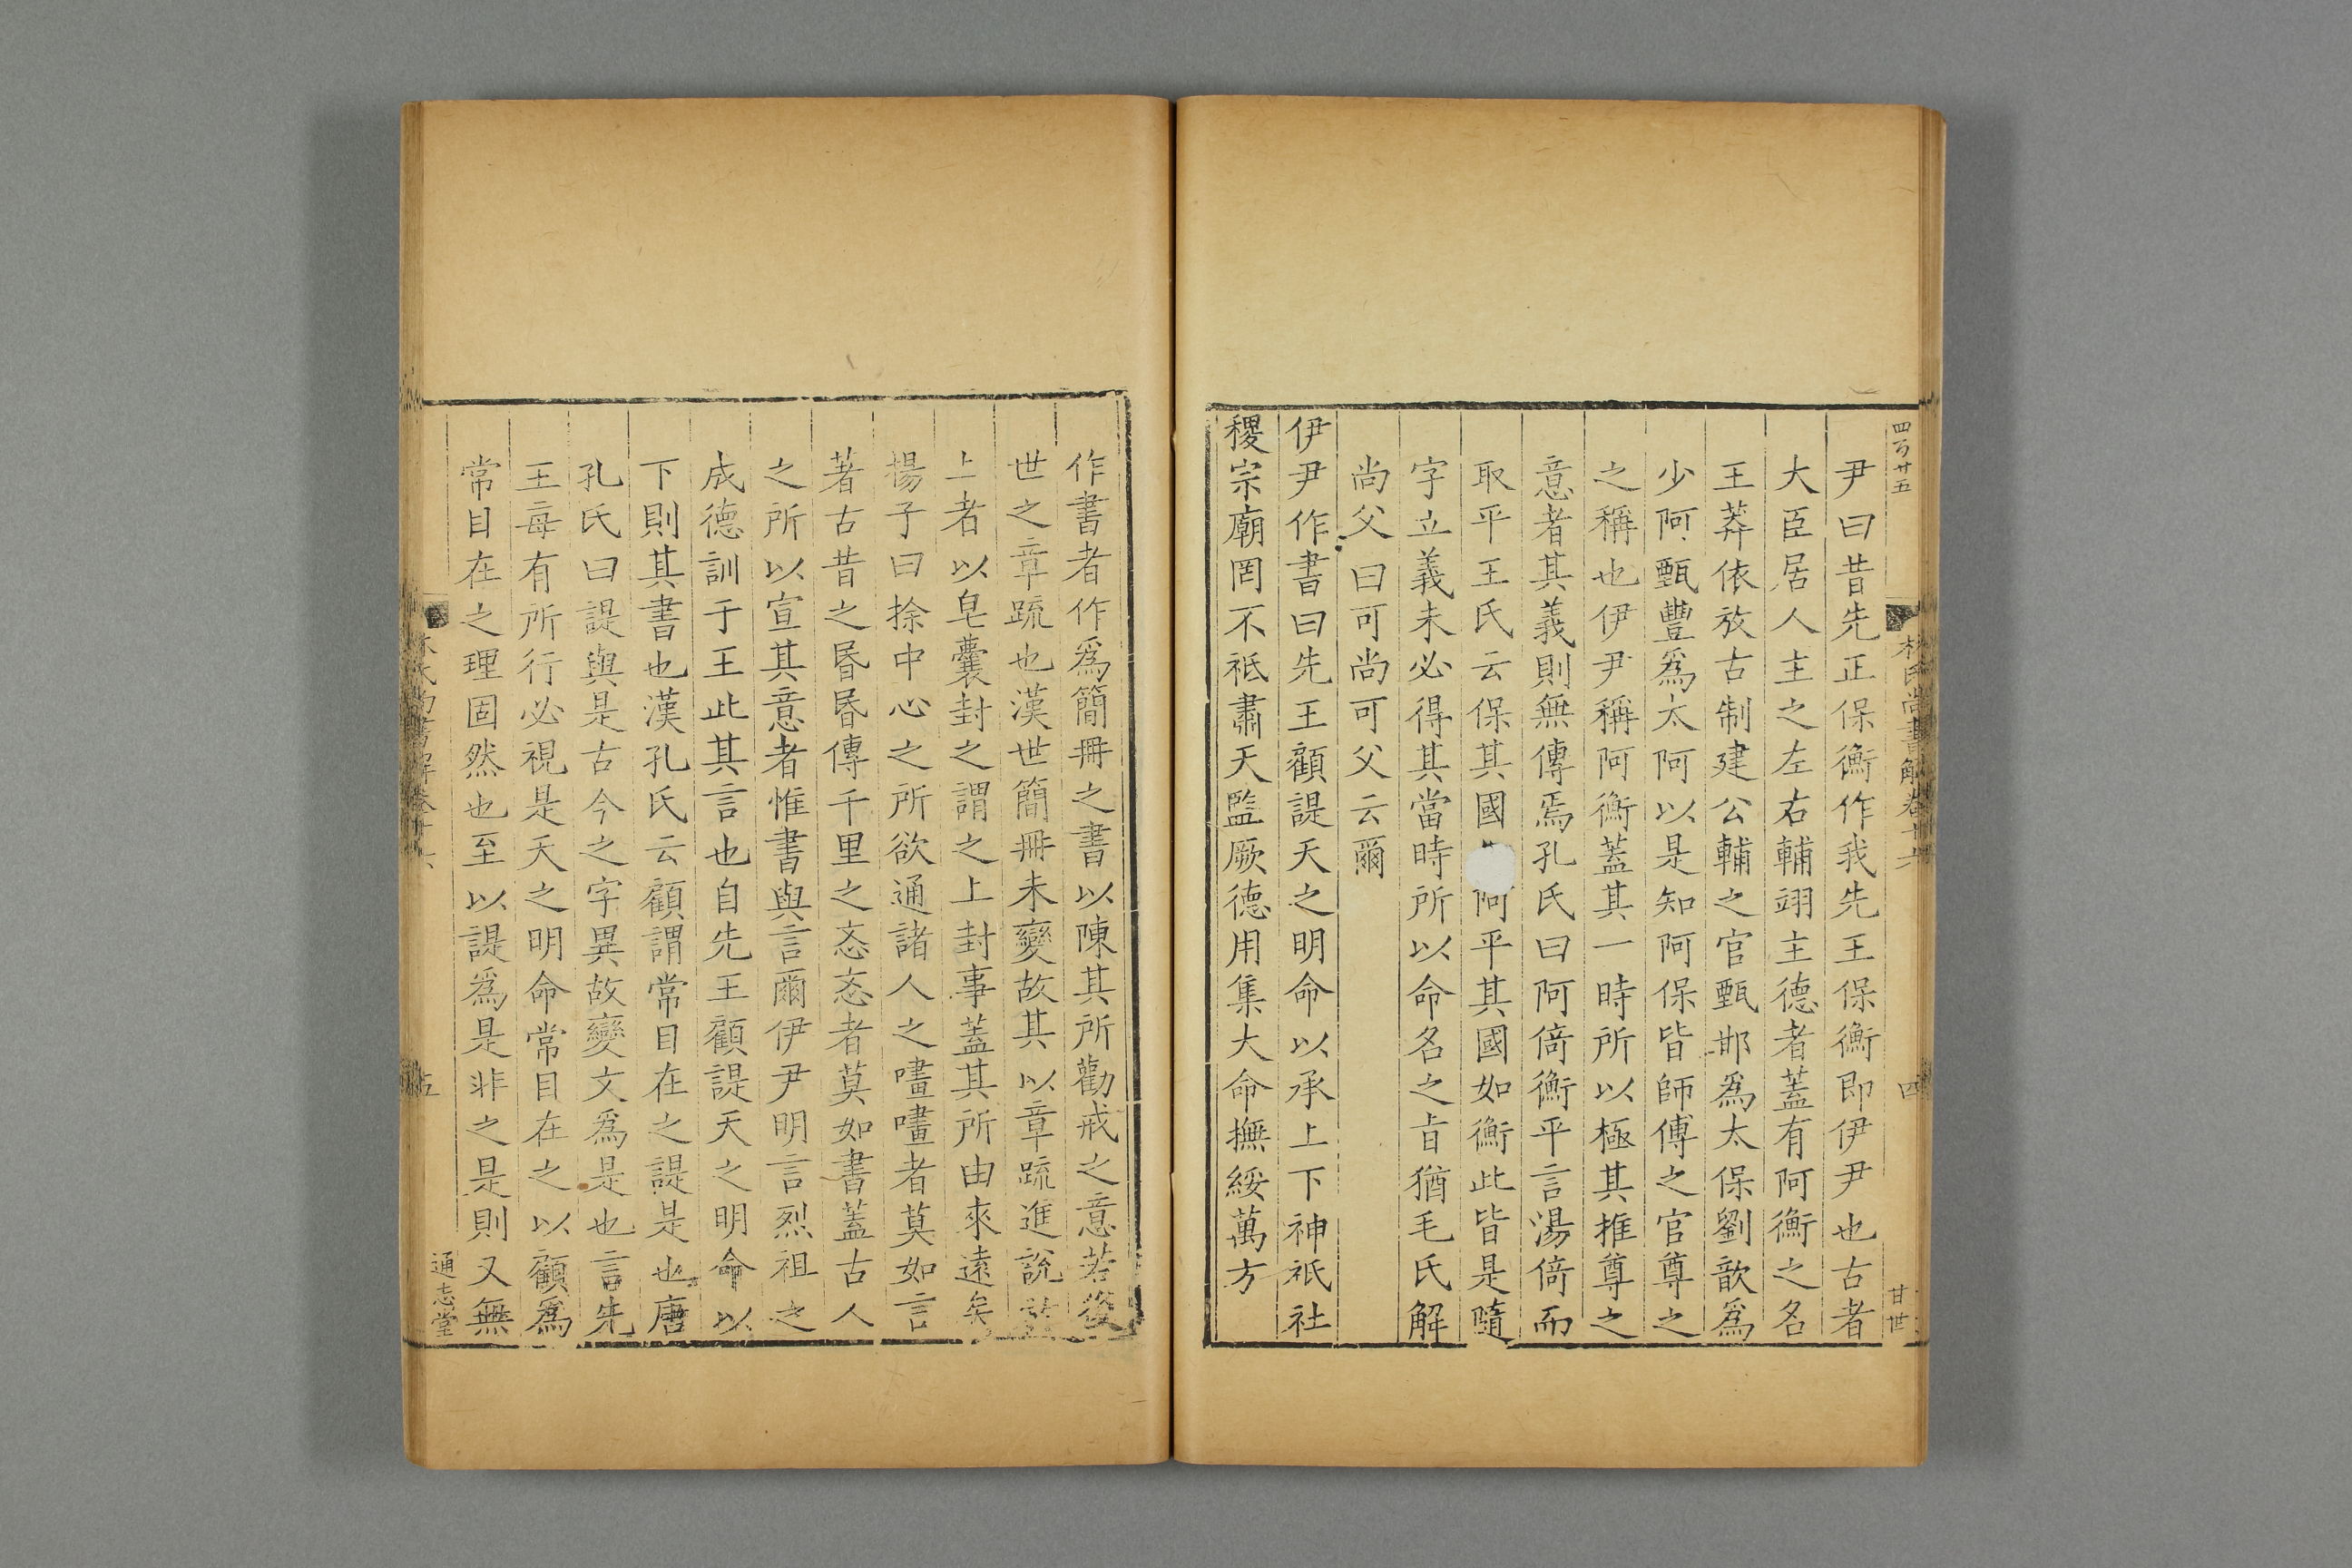 四百廿五
尹曰昔先正保衡作我先王保衡即伊尹也古者
大臣居人主之左右輔翊主德者蓋有阿衡之名
王莽依放古制建公輔之官甄邯爲太保劉歆爲
少阿甄豐爲太阿以是知阿保皆師傅之官尊之
之稱也伊尹稱阿衡蓋其一時所以極其推尊之
意者其義則無傳焉孔氏曰阿倚衡平言湯倚而
取平王氏云保其國阿平其國如衡此皆是隨
字立義未必得其當時所以命名之旨猶毛氏解
尚父曰可尚可父云爾
伊尹作書曰先王顧諟天之明命以承上下神祇社
稷宗廟罔不祗肅天監厥德用集大命撫綏萬方
林氏尚書解卷十六
四
甘世
作書者作爲簡冊之書以陳其所勸戒之意若後
世之章疏也漢世簡冊未變故其以章疏進說
上者以皂囊封之謂之上封事蓋其所由來遠矣
揚子曰捈中心之所欲通諸人之嚍嚍者莫如言
著古昔之㖧㖧傳千里之忞忞者莫如書蓋古人
之所以宣其意者惟書與言爾伊尹明言烈祖之
成德訓于王此其言也自先王顧諟天之明命以
下則其書也漢孔氏云顧謂常目在之諟是也唐
孔氏曰諟與是古今之字異故變文爲是也言先
王每有所行必視是天之明命常目在之以顧爲
常目在之理固然也至以諟爲是非之是則又無
五
通志堂